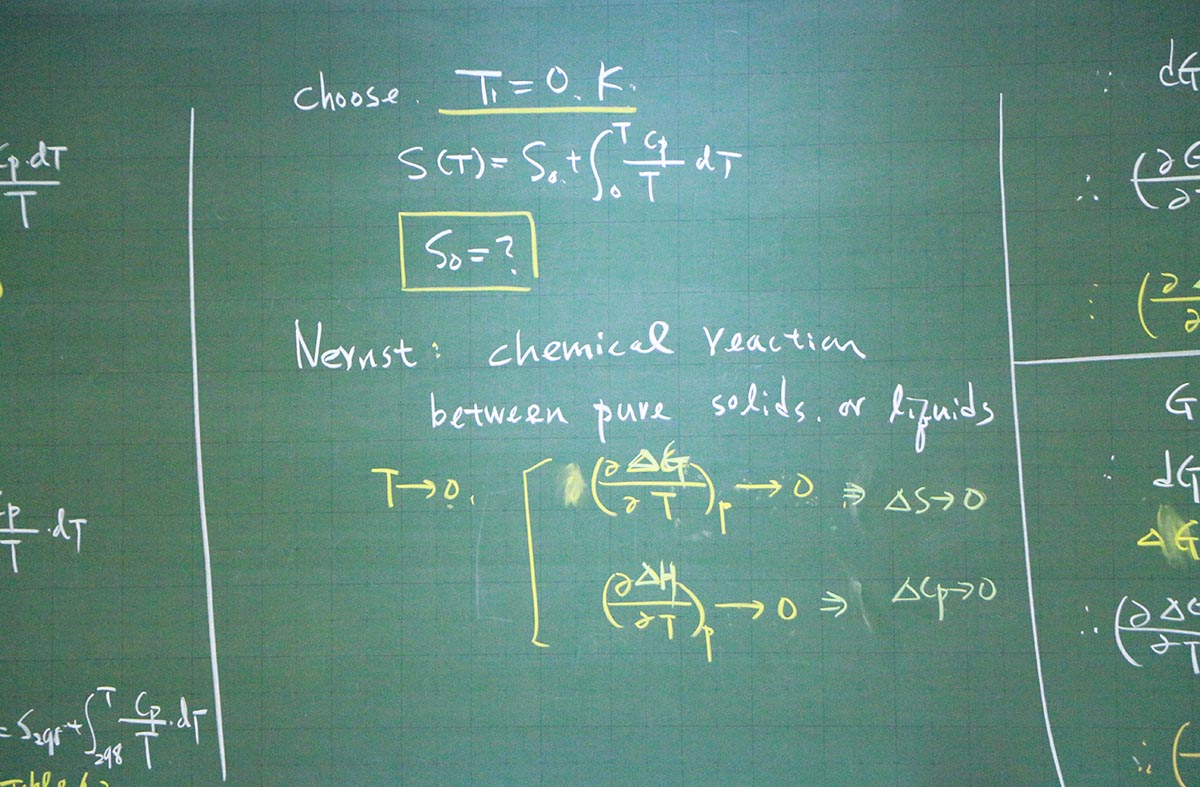 Cp.dT/T
Cp/T.dT
= S298 + ∫_298^T Cp/T.dT
choose. T₁ = 0. K.
S(T) = S₀. + ∫₀^T Cp/T dT
S₀ = ?
Nernst: chemical reaction
between pure solids. or liquids
T→0. [ (∂ΔG/∂T)p → 0 ⇒ ΔS→0
(∂ΔH/∂T)p → 0 ⇒ ΔCp→0
∴ dG
G
∴ dG
ΔG